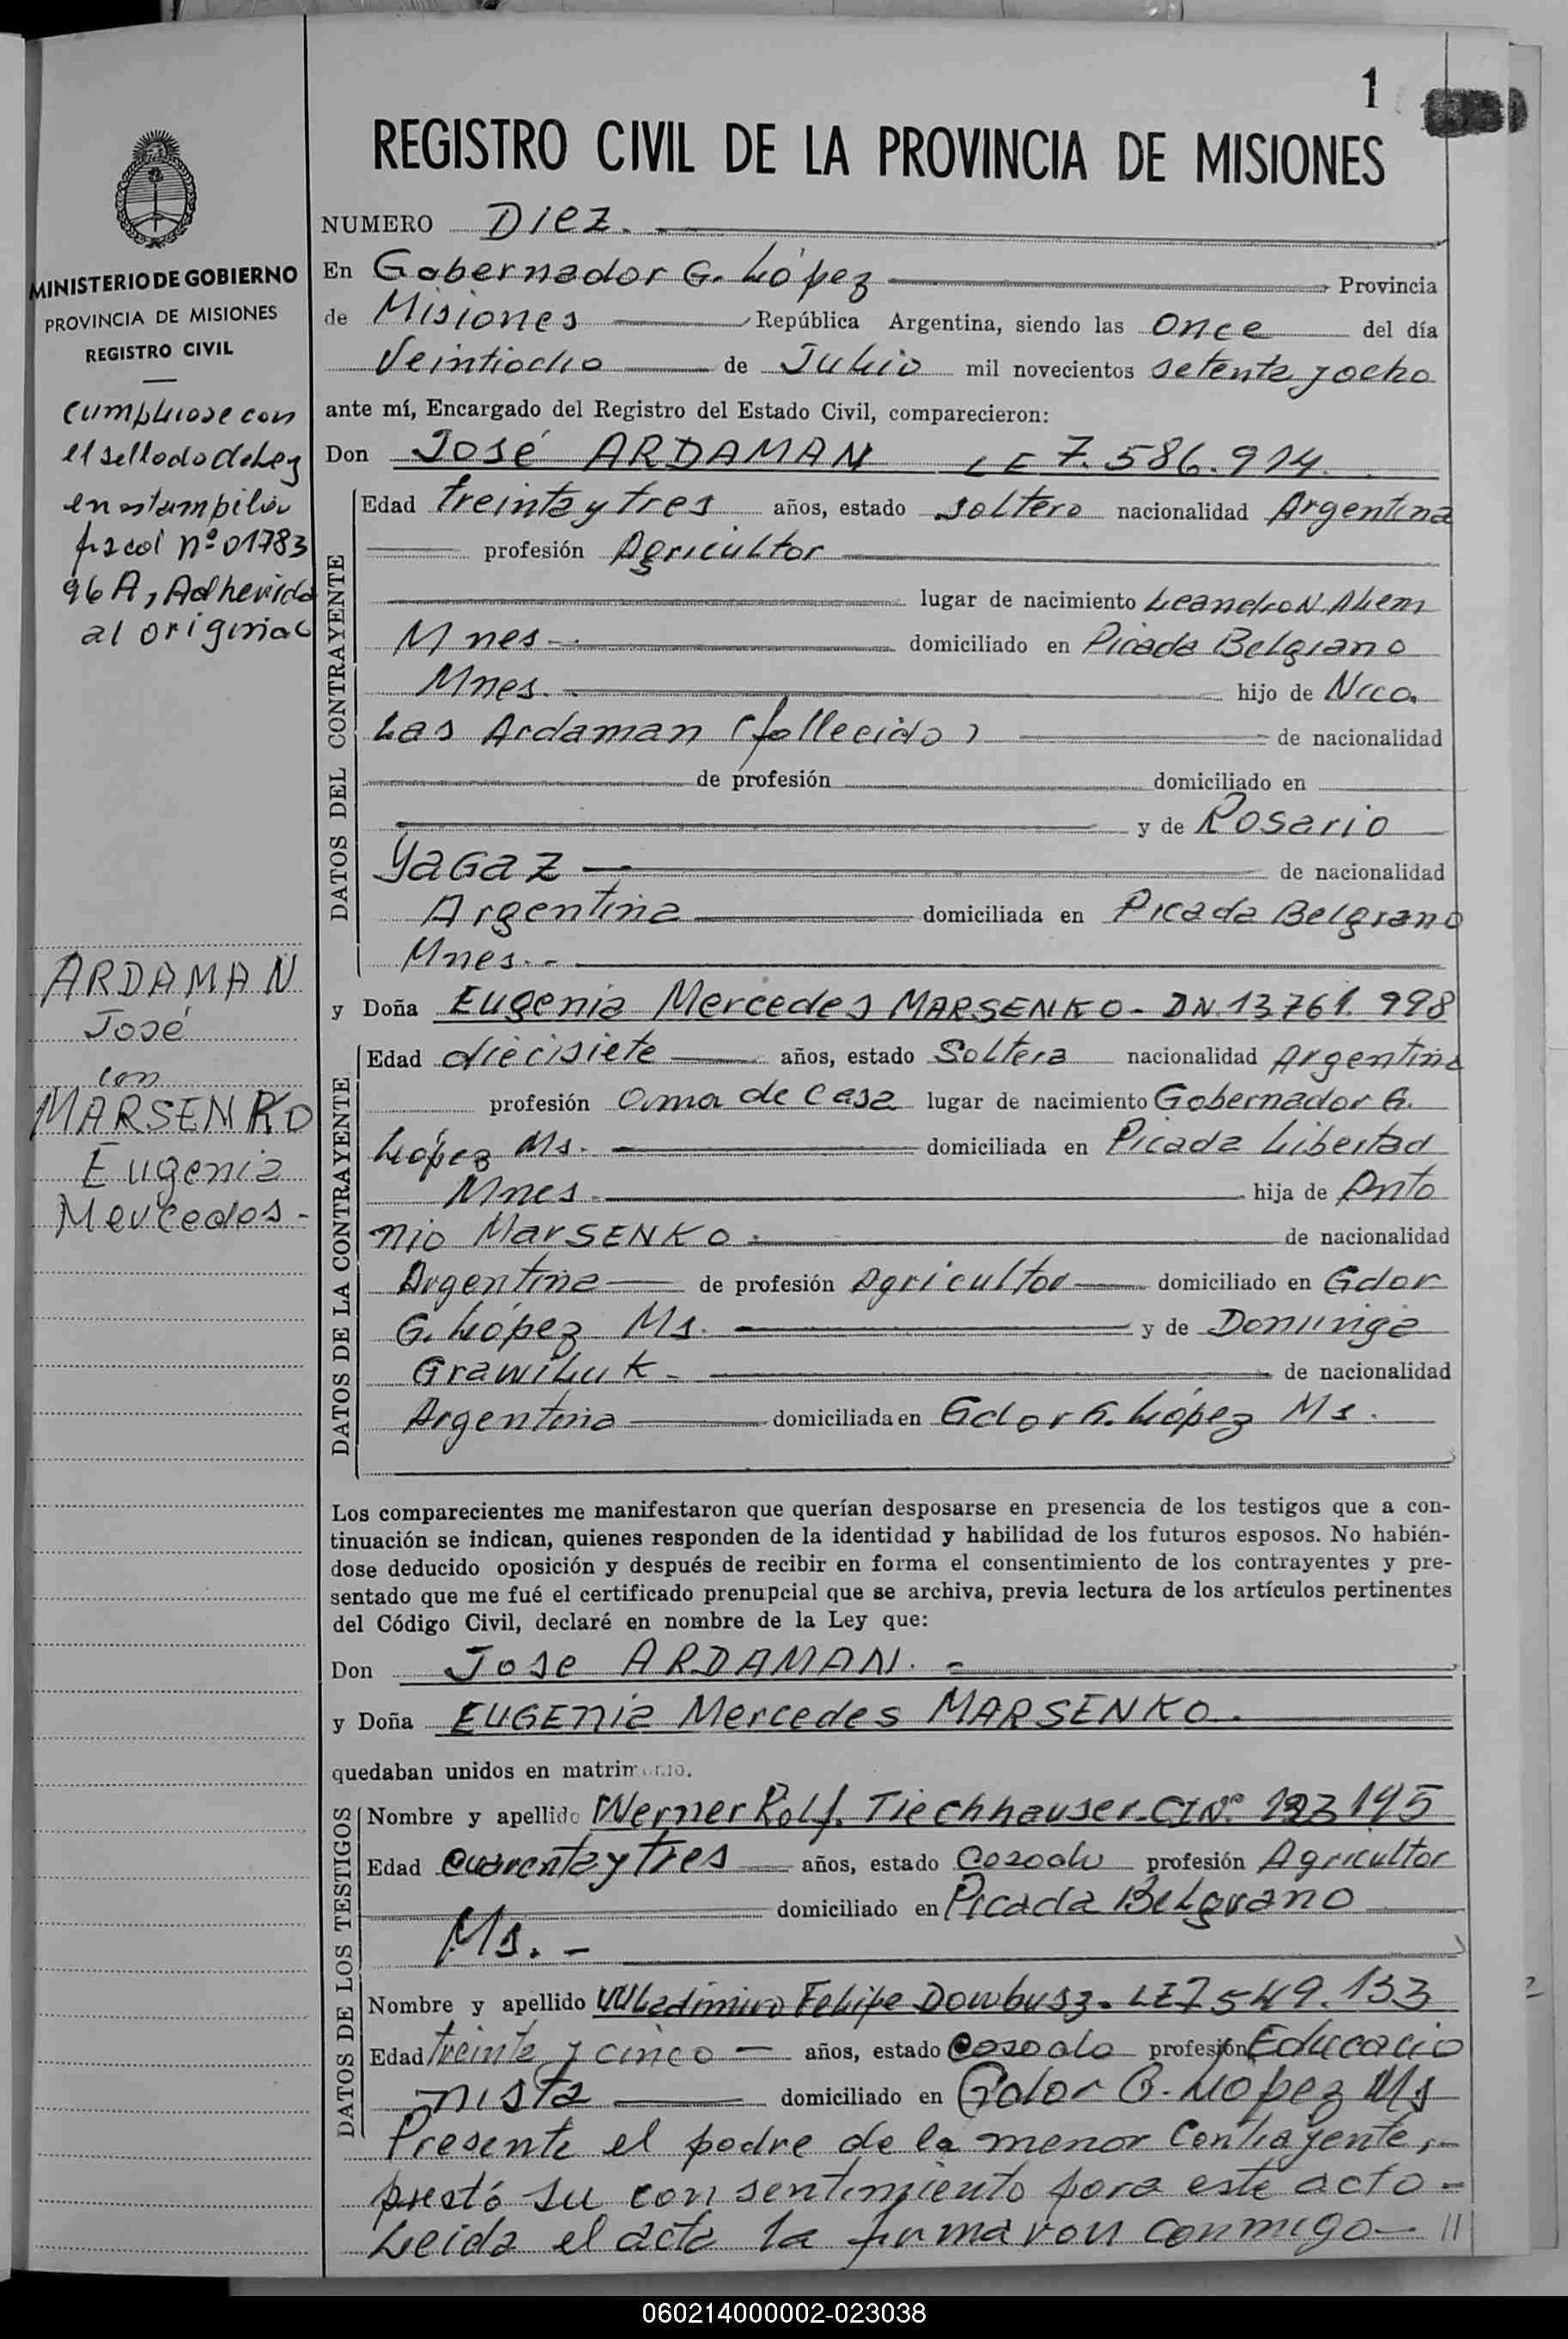 1
REGISTRO CIVIL DE LA PROVINCIA DE MISIONES
MINISTERIO DE GOBIERNO
PROVINCIA DE MISIONES
REGISTRO CIVIL
Cumpliose con
el sellado de Ley
en estampilla
fiscal nº 01783
96 A, Adherida
al original
ARDAMAN
José
con
MARSENKO
Eugenia
Mercedes -
NUMERO Diez. -
En Gobernador G. López Provincia
de Misiones República Argentina, siendo las Once del día
Veintiocho de Julio mil novecientos setenta y ocho
ante mí, Encargado del Registro del Estado Civil, comparecieron:
Don José ARDAMAN LE 7.586.914.
DATOS DEL CONTRAYENTE
Edad treinta y tres años, estado soltero nacionalidad Argentina
profesión Agricultor
lugar de nacimiento Leandro N. Alem
Mnes - domiciliado en Picada Belgrano
Mnes. - hijo de Nico
Las Ardaman (fallecido) de nacionalidad
de profesión domiciliado en
y de Rosario
YAGAZ - de nacionalidad
Argentina domiciliada en Picada Belgrano
Mnes. -
y Doña Eugenia Mercedes MARSENKO - DN. 13.761.998
DATOS DE LA CONTRAYENTE
Edad diecisiete años, estado Soltera nacionalidad Argentina
profesión Ama de Casa lugar de nacimiento Gobernador G.
López Ms. - domiciliada en Picada Libertad
Mnes. hija de Anto
nio MarSENKO - de nacionalidad
Argentina de profesión Agricultor domiciliado en Gdor
G. López Ms. y de Dominga
Grawiluk - de nacionalidad
Argentina domiciliada en Gdor G. López Ms.
Los comparecientes me manifestaron que querían desposarse en presencia de los testigos que a con-
tinuación se indican, quienes responden de la identidad y habilidad de los futuros esposos. No habién-
dose deducido oposición y después de recibir en forma el consentimiento de los contrayentes y pre-
sentado que me fué el certificado prenupcial que se archiva, previa lectura de los artículos pertinentes
del Código Civil, declaré en nombre de la Ley que:
Don Jose ARDAMAN. -
y Doña EUGENia Mercedes MARSENKO.
quedaban unidos en matrimonio.
DATOS DE LOS TESTIGOS
Nombre y apellido Werner Rolf. Tiechhauser - CI Nº 123195
Edad cuarenta y tres años, estado Casado profesión Agricultor
domiciliado en Picada Belgrano
Ms. -
Nombre y apellido Wladimiro Felipe Dowbusz - LE 7549.133
Edad treinta y cinco - años, estado Casado profesión Educacio
nista domiciliado en Gdor G. López Ms
Presente el padre de la menor Contrayente, -
prestó su consentimiento para este acto -
Leida el acta la firmaron conmigo - //
060214000002-023038